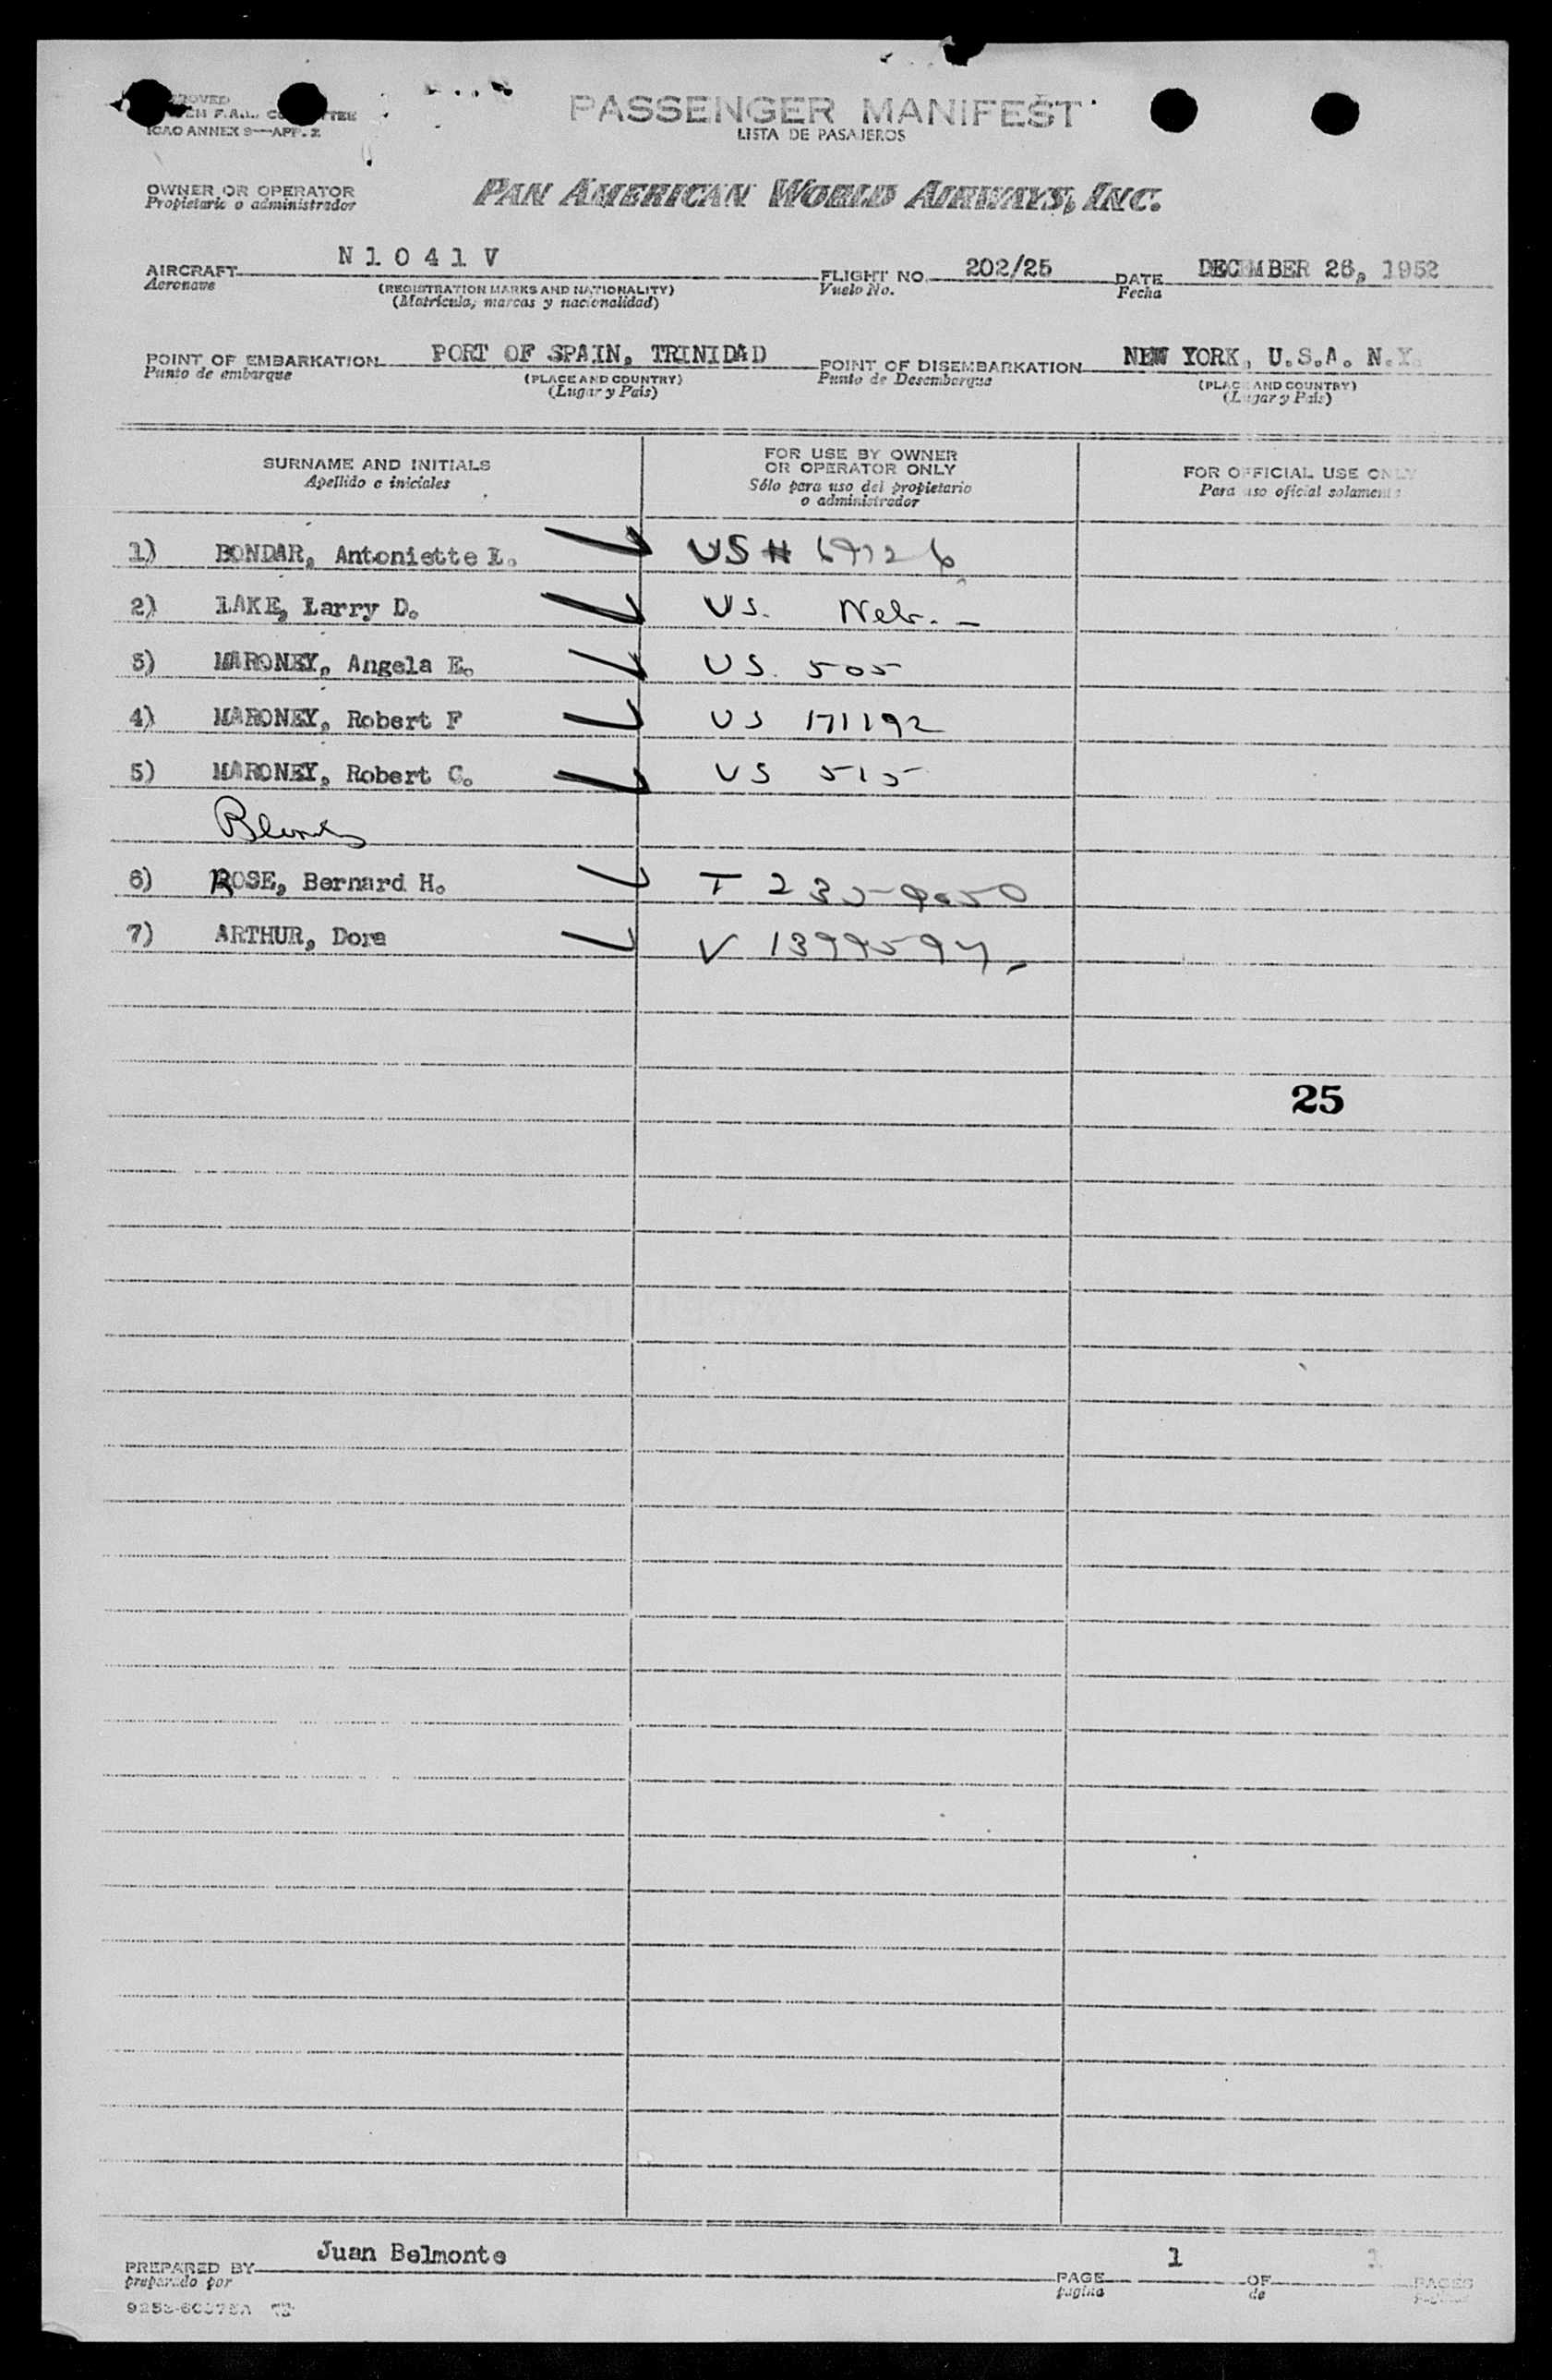 PASSENGER MANIFEST
LISTA DE PASAJEROS
ICAO ANNEX 9—APP. 2
OWNER OR OPERATOR
Propietario o administrador
PAN AMERICAN WORLD AIRWAYS, INC.
AIRCRAFT N 1 0 4 1 V FLIGHT NO. 202/25 DATE DECEMBER 26, 1952
Aeronave Vuelo No. Fecha
(REGISTRATION MARKS AND NATIONALITY)
(Matrícula, marcas y nacionalidad)
POINT OF EMBARKATION PORT OF SPAIN, TRINIDAD POINT OF DISEMBARKATION NEW YORK, U.S.A. N.Y.
Punto de embarque (PLACE AND COUNTRY) Punto de Desembarque (PLACE AND COUNTRY)
(Lugar y País) (Lugar y País)
SURNAME AND INITIALS FOR USE BY OWNER OR OPERATOR ONLY FOR OFFICIAL USE ONLY
Apellido o iniciales Sólo para uso del propietario o administrador Para uso oficial solamente
1) BONDAR, Antoniette L. US #
2) LAKE, Larry D. US. Nebr. -
3) MARONEY, Angela E. US. 505
4) MARONEY, Robert F US 171192
5) MARONEY, Robert C. US 515
6) ROSE, Bernard H. T
7) ARTHUR, Dora V
25
PREPARED BY Juan Belmonte PAGE 1 OF 1 PAGES
preparado por pagina de